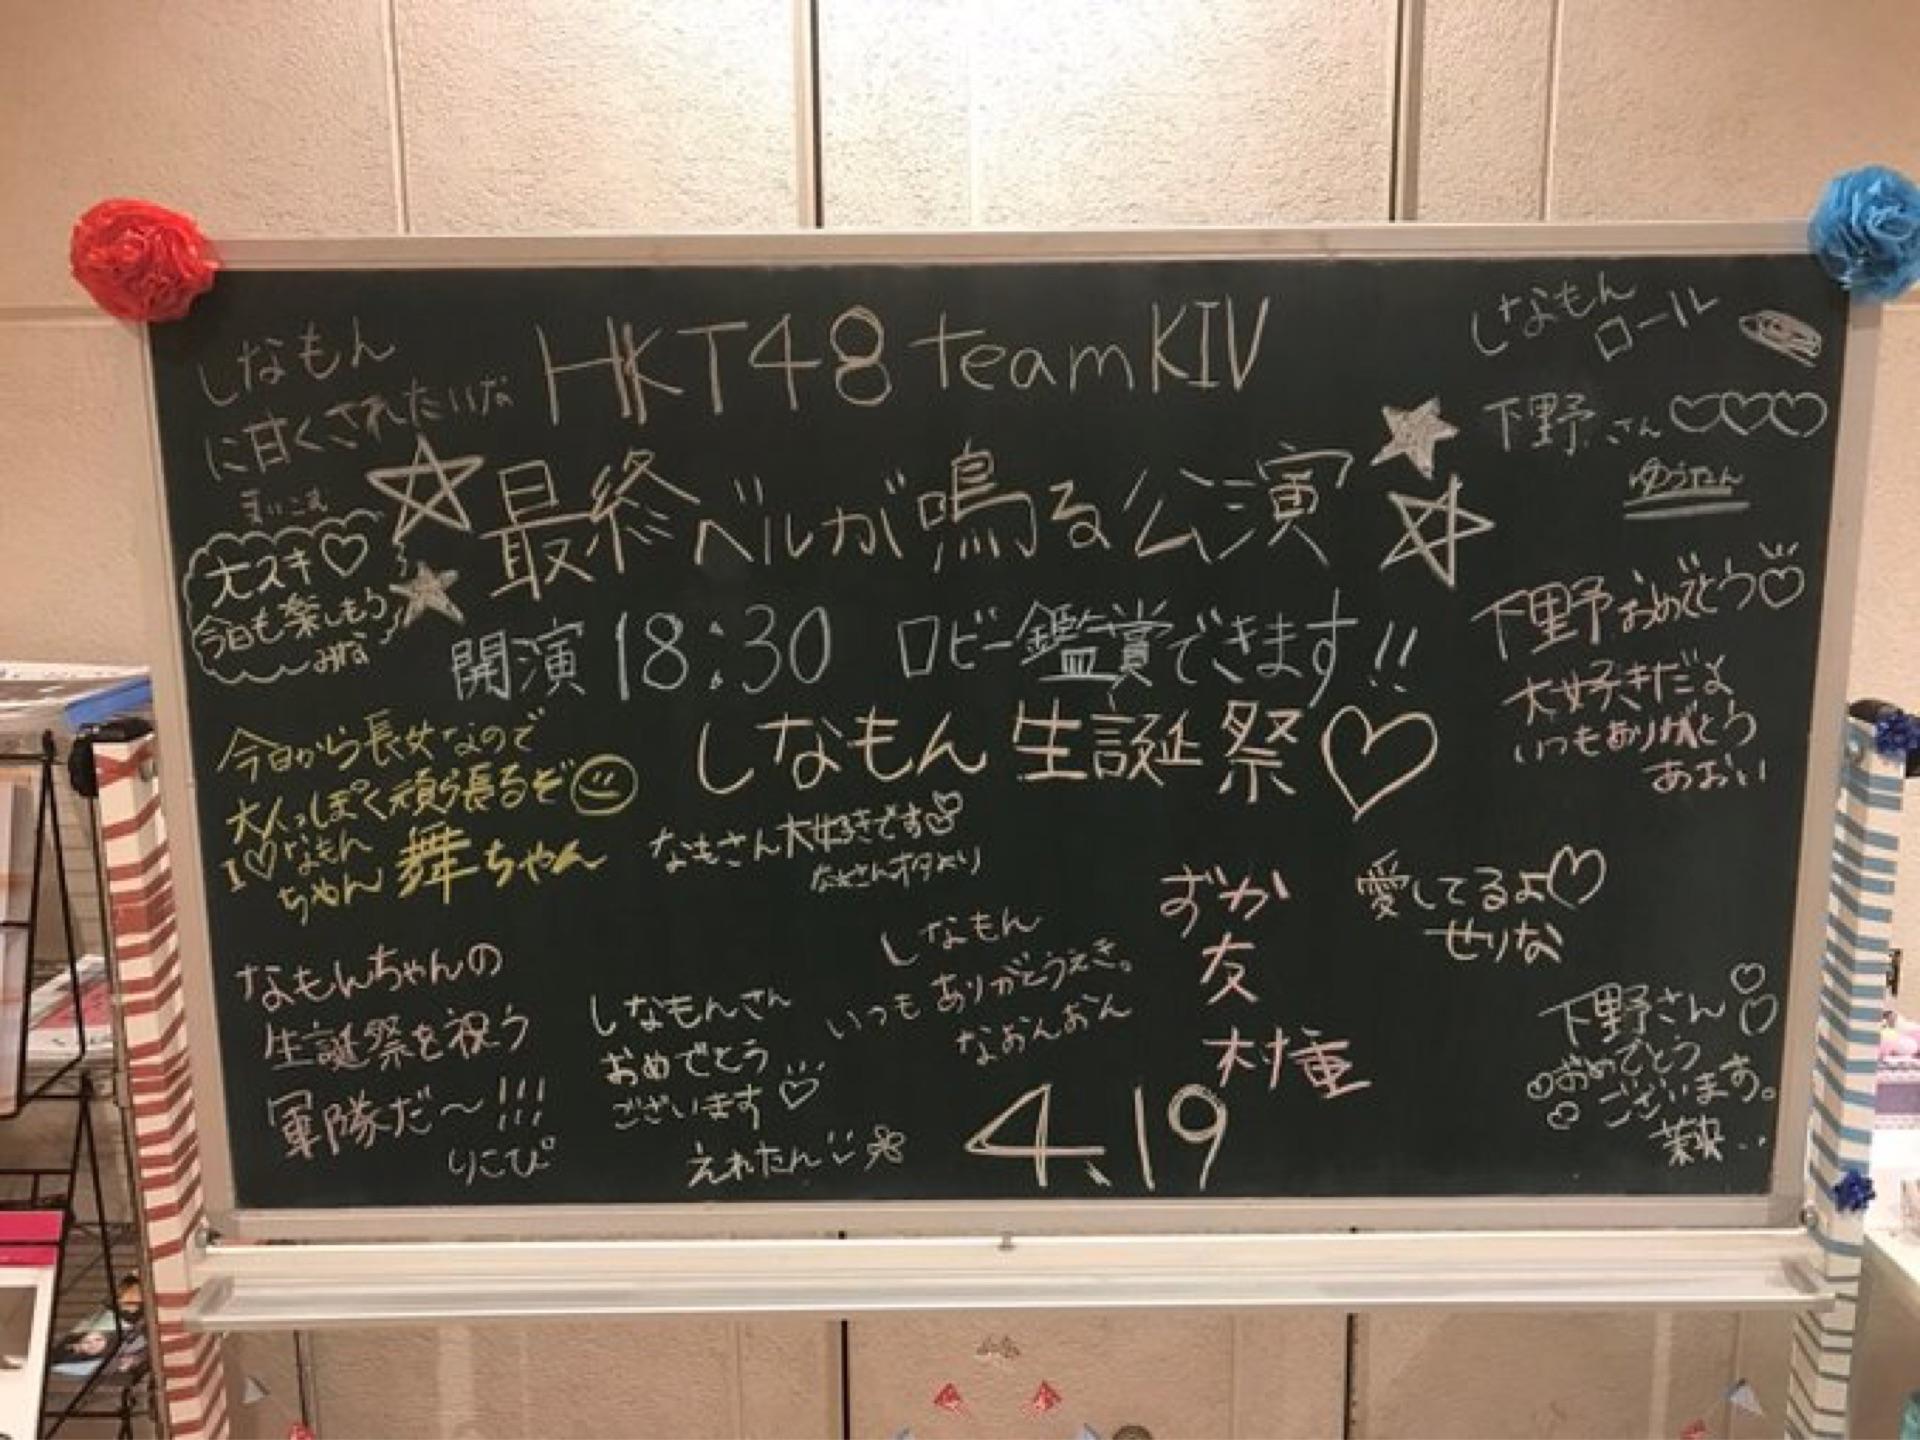 HKT48 teamKIV
最終ベルが鳴る公演
開演 18:30 ロビー鑑賞できます!!
しなもん 生誕祭♡
しなもん
に甘くされたいな
まいこぇ
大スキ♡
今日も楽しもう
みな
今日から長女なので
大人っぽく頑張るぞ
I♡なもん
ちゃん 舞ちゃん
なもさん大好きです
なもさんオタより
なもんちゃんの
生誕祭を祝う
軍隊だ〜!!!
りこぴ
しなもんさん
おめでとう
ございます♡
えれたん
しなもん
いつも ありがとうえき。
なおんおん
ずか
友
村重
4.19
しなもん
ロール
下野さん♡♡♡
ゆうたん
下野おめでとう♡
大好きだよ
いつもありがとう
あおい
愛してるよ♡
せりな
下野さん
おめでとう
ございます。